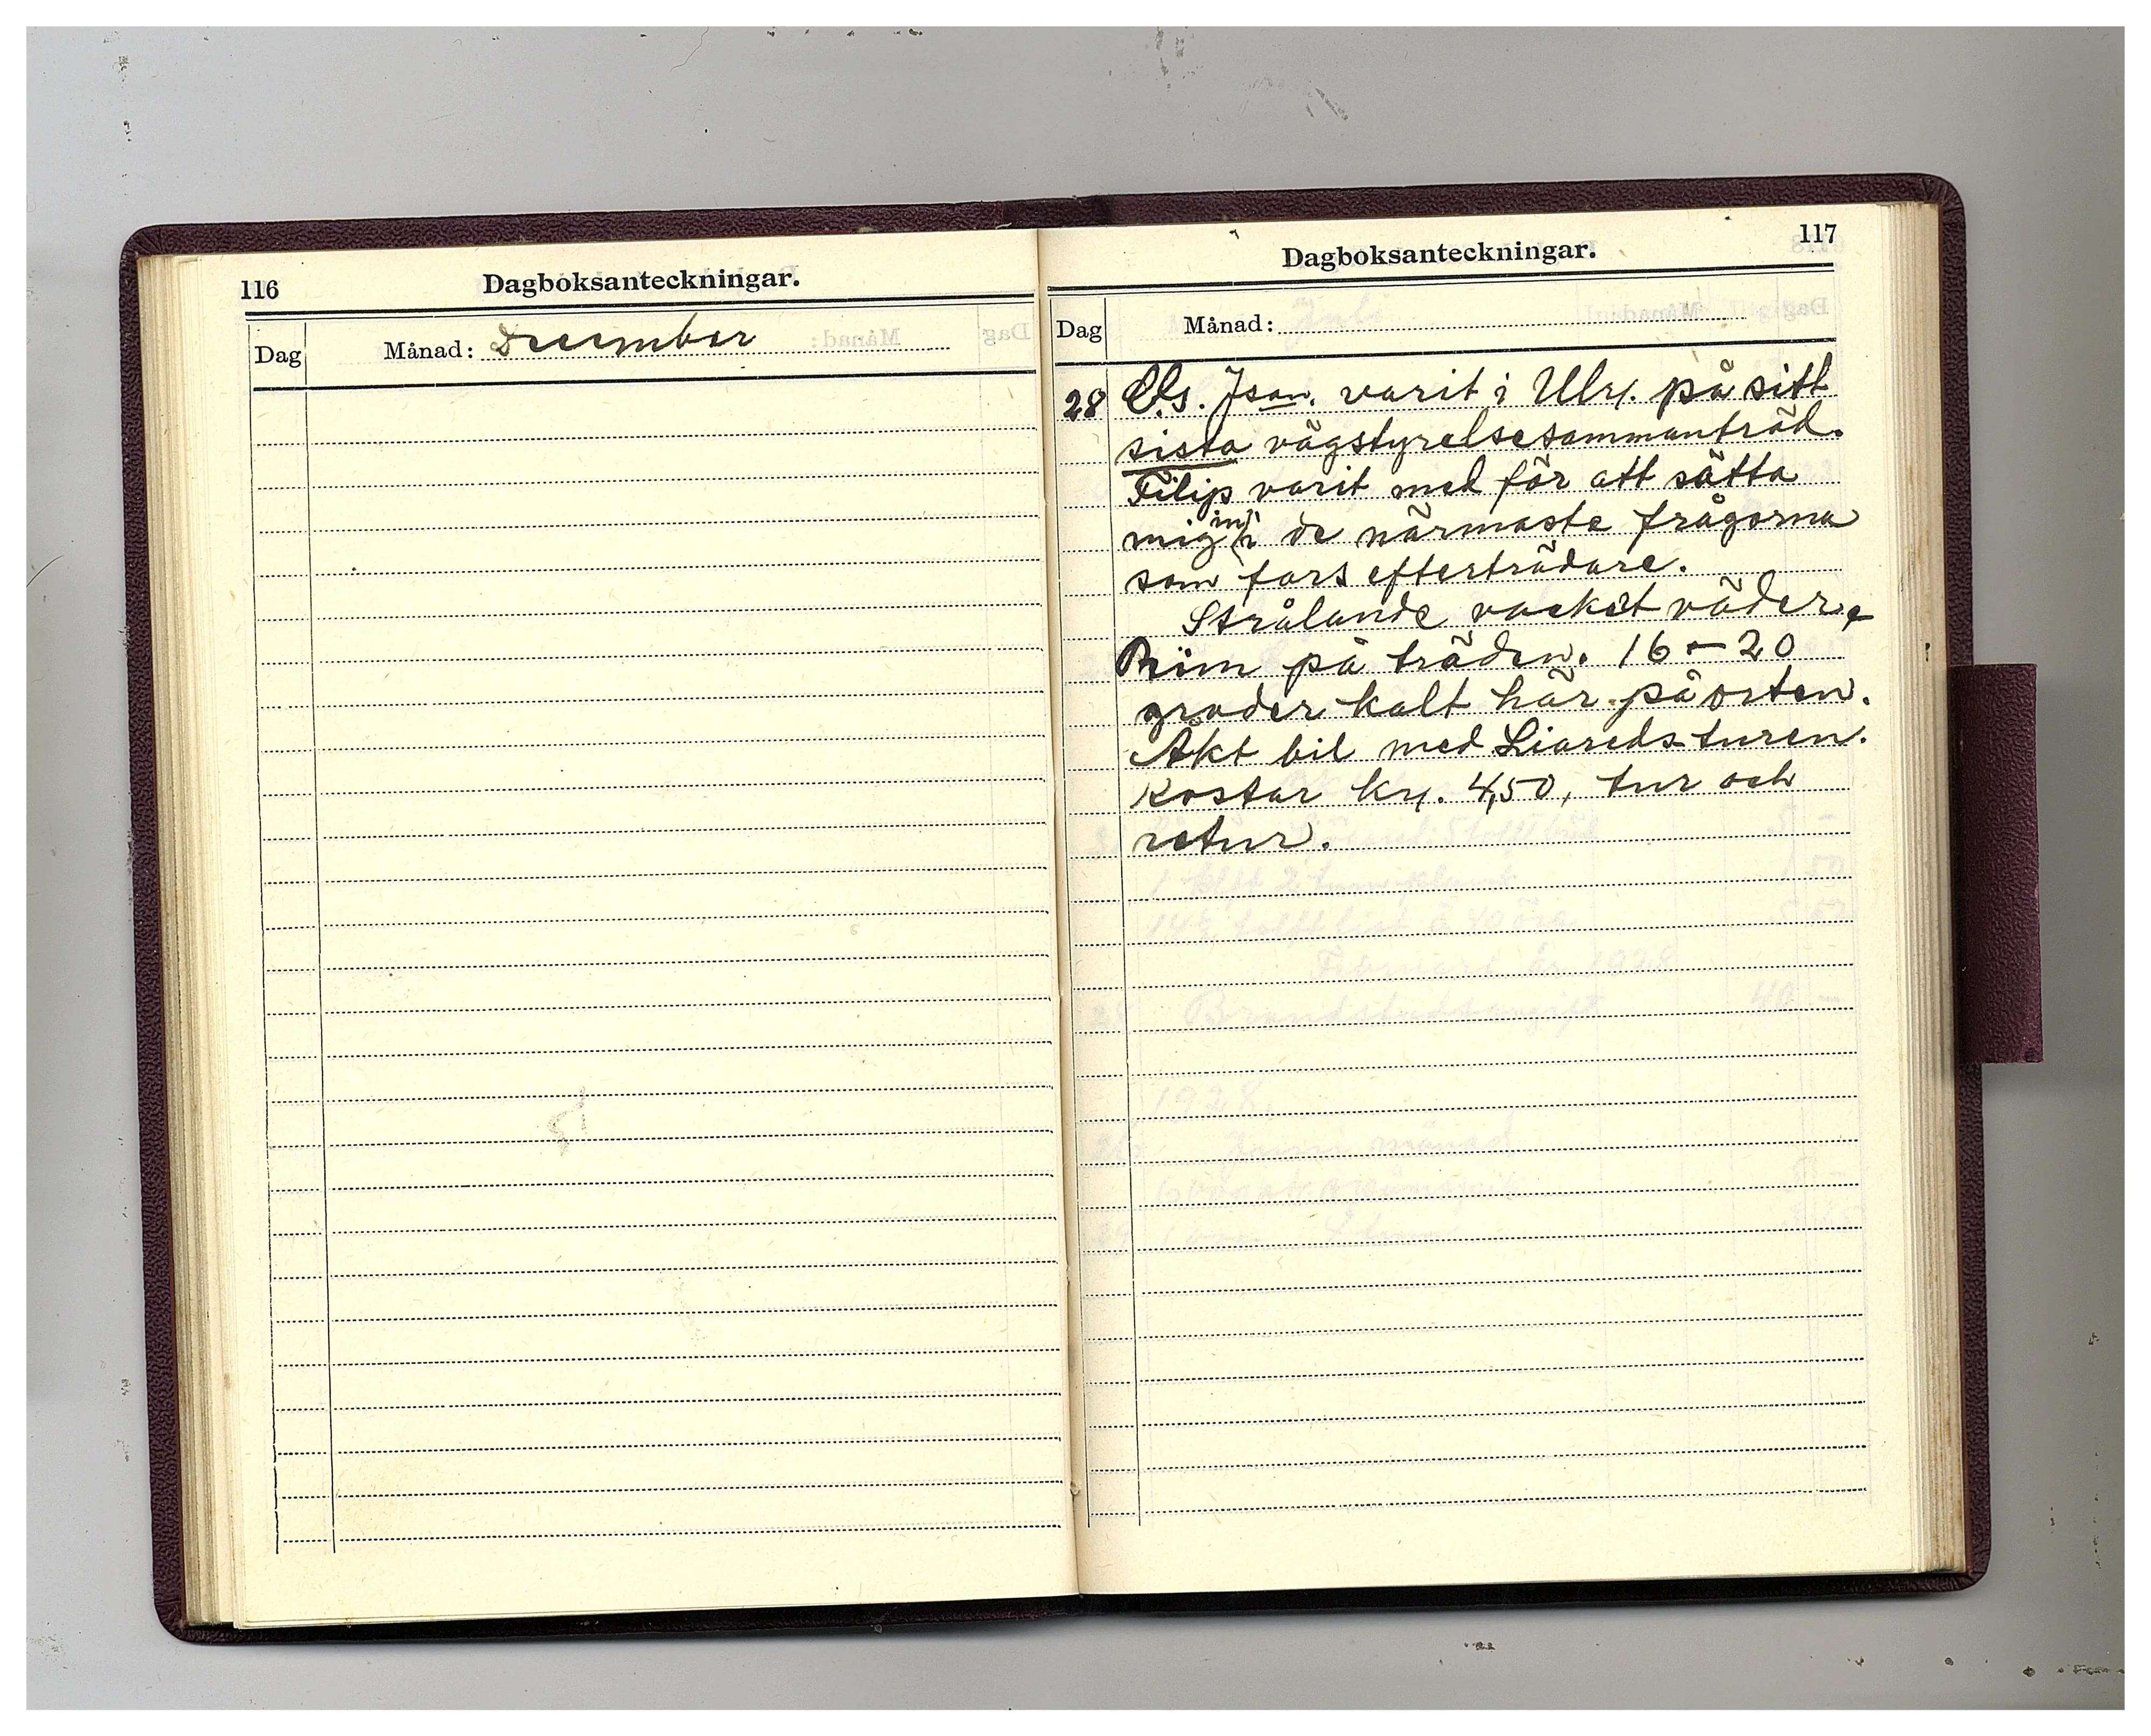 116
Dagboksanteckningar.
Dag
Månad: December
117
Dagboksanteckningar.
Dag
Månad:
28 Cls. Json. varit i Ulr. på sitt
sista vägstyrelsesammanträd.
Filip varit med för att sätta
mig in i de närmaste frågorna
som fars efterträdare.
Strålande vackert väder,
Rim på träden. 16 – 20
grader kalt här på orten.
Åkt bil med Liaredsturen.
Kostar kr. 4,50, tur och
retur.